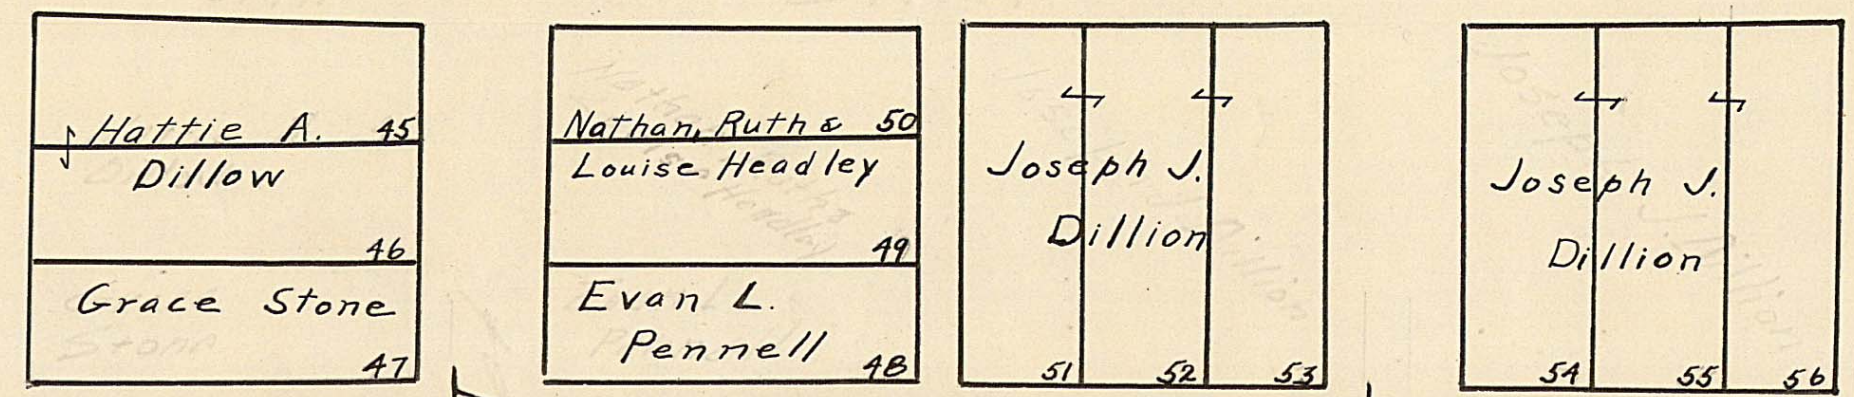 Hattie A. 45
Dillow
46
Grace Stone
47
Nathan, Ruth & 50
Louise Headley
49
Evan L.
Pennell 48
Joseph J.
Dillion
51 52 53
Joseph J.
Dillion
54 55 56